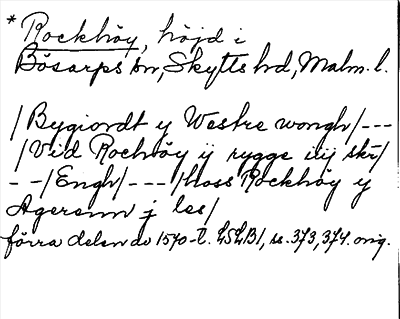 * Rockhöy, höjd i
Bösarps sn, Skytts hd, Malm. l.
/Bygiordt y Westre wongh/---
/Vid Rochöy ij rygge iiij skr/
--/Engh/---/hoss Rockhöy y
Agerenn j les/
förra delen av 1570-t. LSLB1, ss. 373, 374. orig.